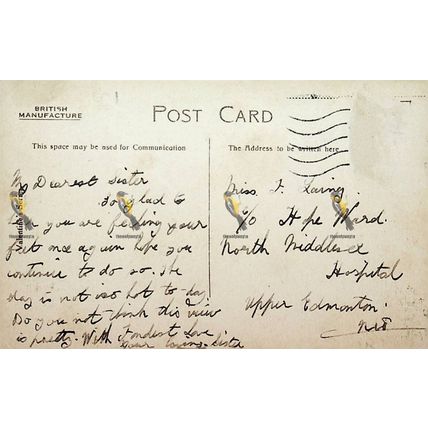 BRITISH
MANUFACTURE
POST CARD
This space may be used for Communication
The Address to be written here
Valentine's Series
My Dearest Sister
So glad to
you are feeling your
feet once again hope you
continue to do so. The
day is not so hot to day
Do you not think this view
is pretty. With Fondest Love
your loving Sister
Miss F. Laing
c/o Hope Ward.
North Middlesex
Hospital
Upper Edmonton.